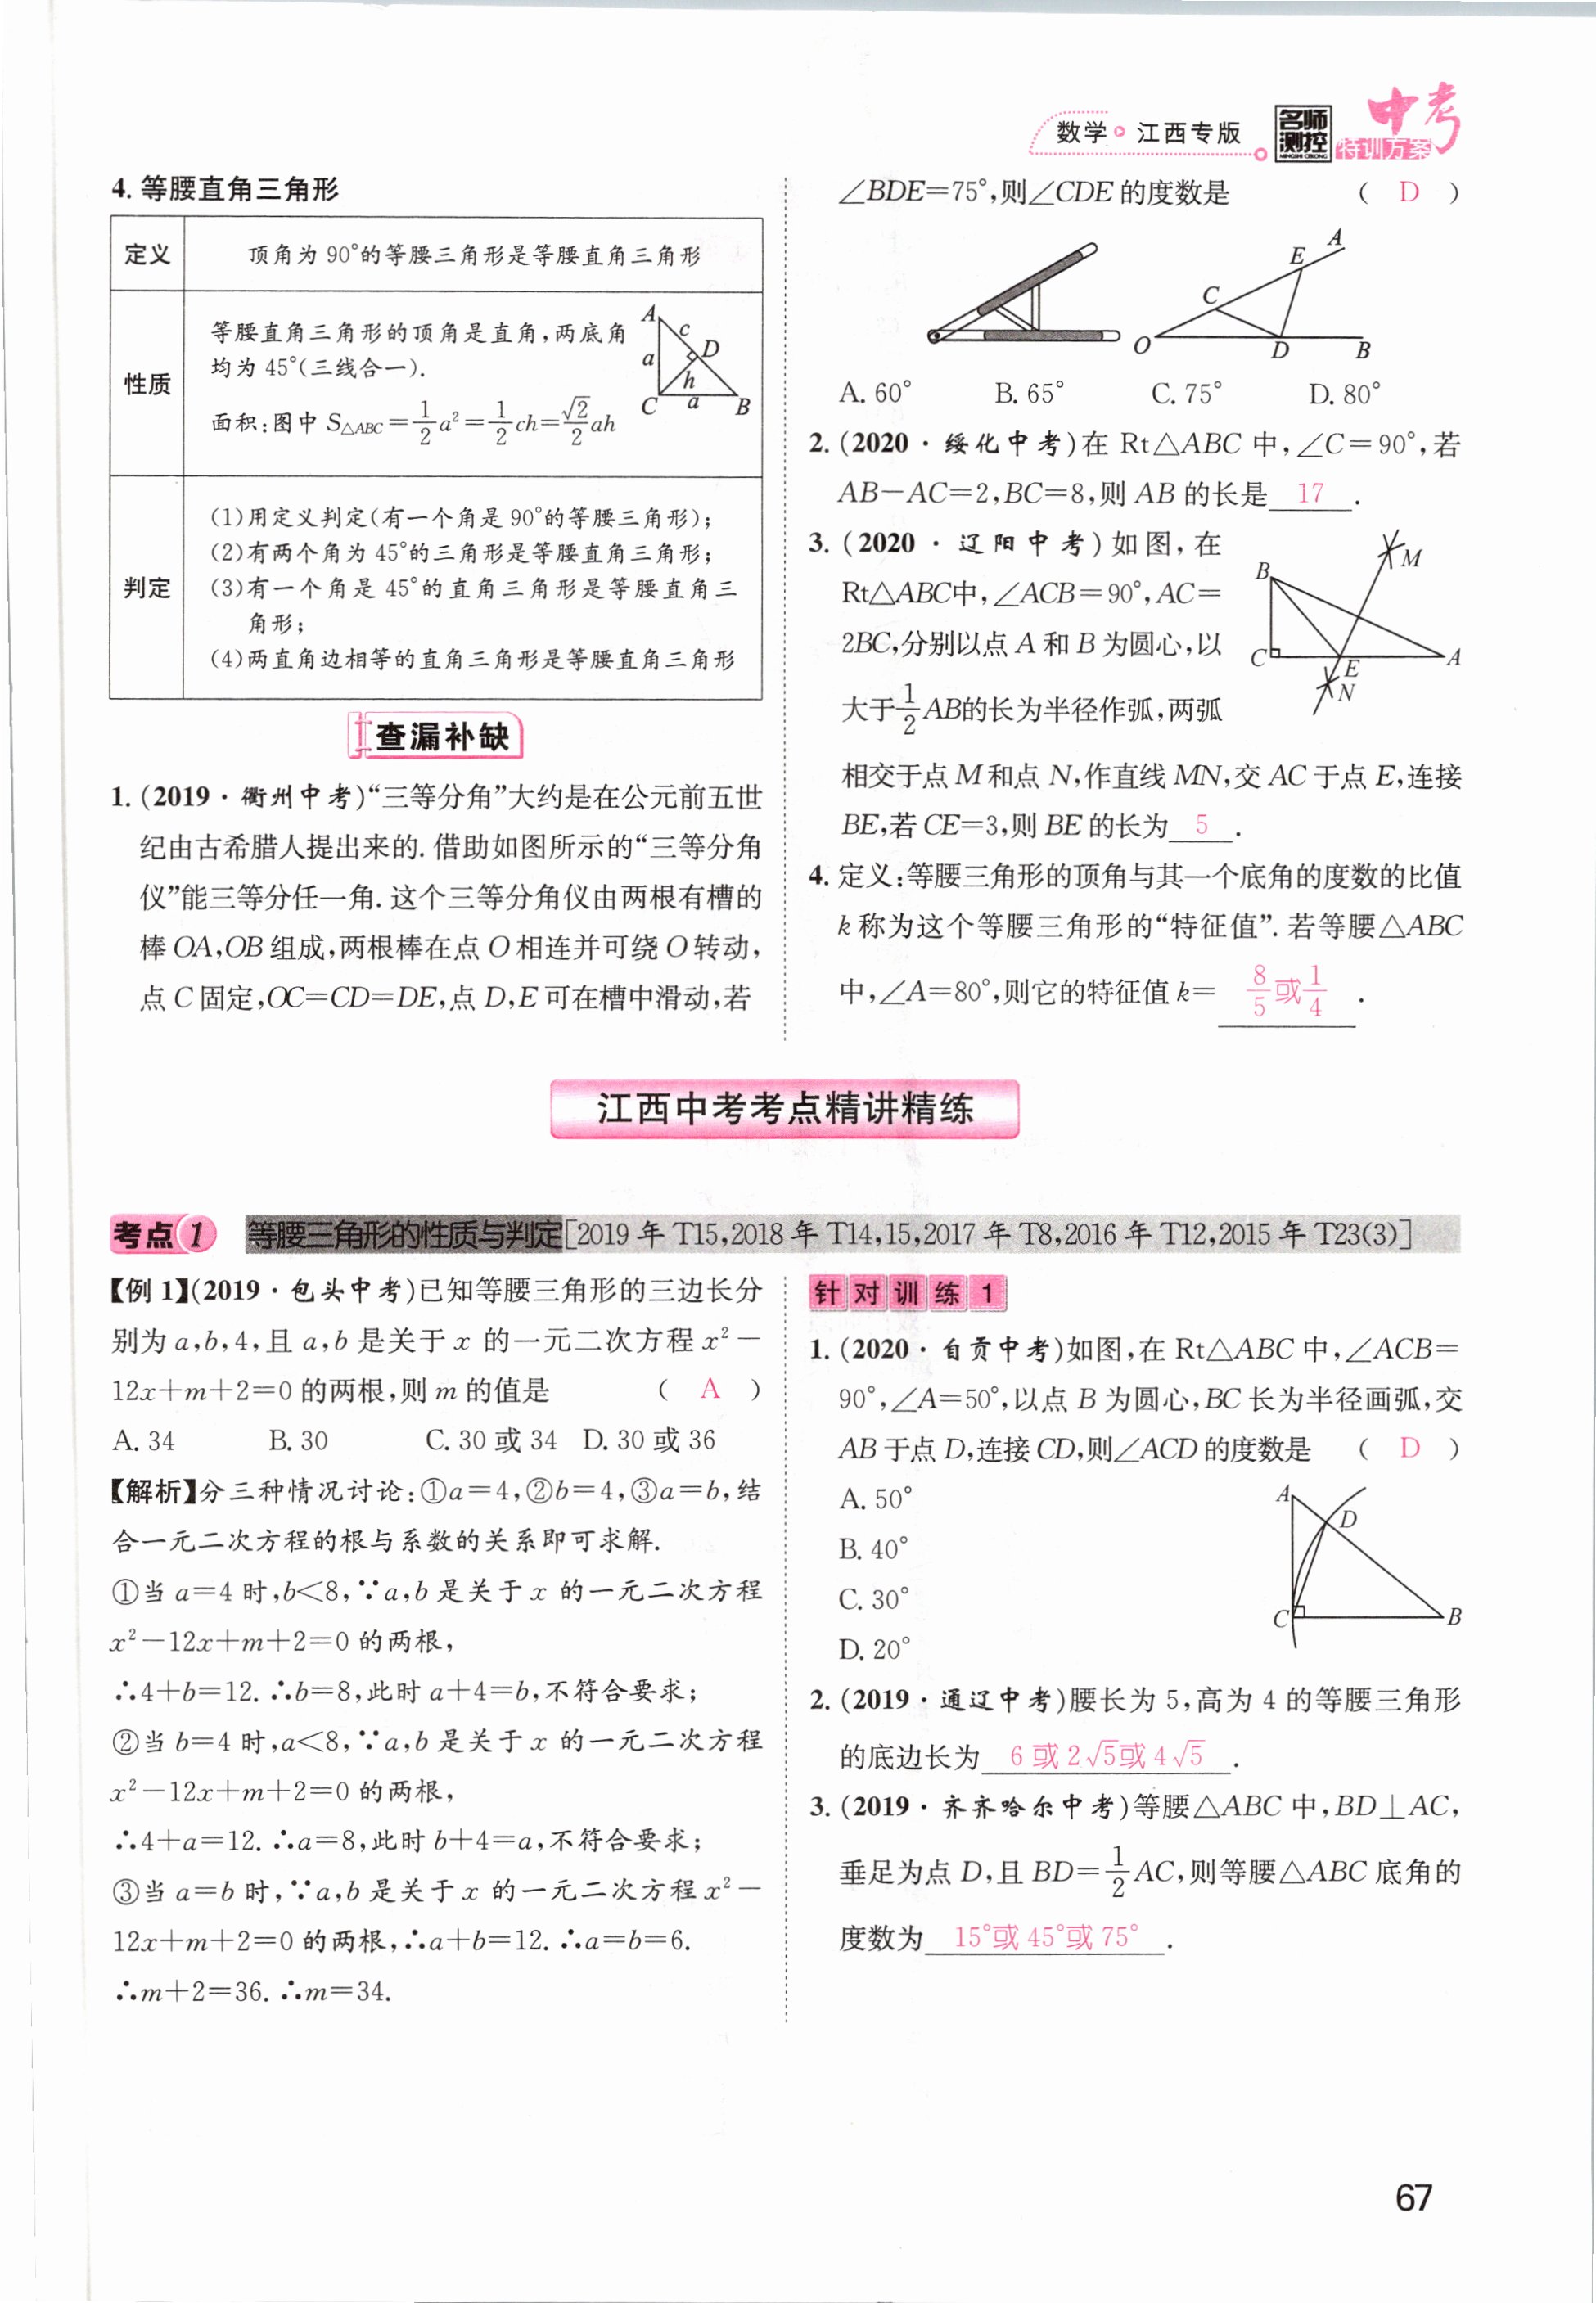 数学 江西专版 名师测控 中考特训方案
4. 等腰直角三角形
定义 顶角为 90°的等腰三角形是等腰直角三角形
性质
等腰直角三角形的顶角是直角,两底角
均为 45°(三线合一).
面积:图中 S△ABC=1/2a²=1/2ch=√2/2ah
A c D a h C a B
判定
(1)用定义判定(有一个角是 90°的等腰三角形);
(2)有两个角为 45°的三角形是等腰直角三角形;
(3)有一个角是 45°的直角三角形是等腰直角三
角形;
(4)两直角边相等的直角三角形是等腰直角三角形
查漏补缺
1. (2019·衢州中考)“三等分角”大约是在公元前五世
纪由古希腊人提出来的. 借助如图所示的“三等分角
仪”能三等分任一角. 这个三等分角仪由两根有槽的
棒 OA,OB 组成,两根棒在点 O 相连并可绕 O 转动,
点 C 固定,OC=CD=DE,点 D,E 可在槽中滑动,若
∠BDE=75°,则∠CDE 的度数是 ( D )
A E C O D B
A. 60° B. 65° C. 75° D. 80°
2. (2020·绥化中考)在 Rt△ABC 中,∠C=90°,若
AB-AC=2,BC=8,则 AB 的长是 17 .
3. (2020·辽阳中考)如图,在
Rt△ABC中,∠ACB=90°,AC=
2BC,分别以点 A 和 B 为圆心,以
大于1/2AB的长为半径作弧,两弧
相交于点 M 和点 N,作直线 MN,交 AC 于点 E,连接
BE,若 CE=3,则 BE 的长为 5 .
M B C E A N
4. 定义:等腰三角形的顶角与其一个底角的度数的比值
k 称为这个等腰三角形的“特征值”. 若等腰△ABC
中,∠A=80°,则它的特征值 k= 8/5或1/4 .
江西中考考点精讲精练
考点1 等腰三角形的性质与判定[2019 年 T15,2018 年 T14,15,2017 年 T8,2016 年 T12,2015 年 T23(3)]
【例 1】(2019·包头中考)已知等腰三角形的三边长分
别为 a,b,4,且 a,b 是关于 x 的一元二次方程 x²-
12x+m+2=0 的两根,则 m 的值是 ( A )
A. 34 B. 30 C. 30 或 34 D. 30 或 36
【解析】分三种情况讨论:①a=4,②b=4,③a=b,结
合一元二次方程的根与系数的关系即可求解.
①当 a=4 时,b<8,∵a,b 是关于 x 的一元二次方程
x²-12x+m+2=0 的两根,
∴4+b=12. ∴b=8,此时 a+4=b,不符合要求;
②当 b=4 时,a<8,∵a,b 是关于 x 的一元二次方程
x²-12x+m+2=0 的两根,
∴4+a=12. ∴a=8,此时 b+4=a,不符合要求;
③当 a=b 时,∵a,b 是关于 x 的一元二次方程 x²-
12x+m+2=0 的两根,∴a+b=12. ∴a=b=6.
∴m+2=36. ∴m=34.
针对训练1
1. (2020·自贡中考)如图,在 Rt△ABC 中,∠ACB=
90°,∠A=50°,以点 B 为圆心,BC 长为半径画弧,交
AB 于点 D,连接 CD,则∠ACD 的度数是 ( D )
A. 50°
B. 40°
C. 30°
D. 20°
A D C B
2. (2019·通辽中考)腰长为 5,高为 4 的等腰三角形
的底边长为 6 或 2√5或 4√5 .
3. (2019·齐齐哈尔中考)等腰△ABC 中,BD⊥AC,
垂足为点 D,且 BD=1/2AC,则等腰△ABC 底角的
度数为 15°或 45°或 75° .
67